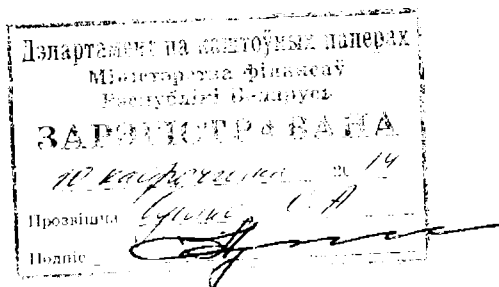 Дэпартамент па каштоўных паперах
Міністэрства фінансаў
Рэспублікі Беларусь
ЗАРЭГІСТРАВАНА
10 кастрычніка 20 14
Прозвішча
Подпіс